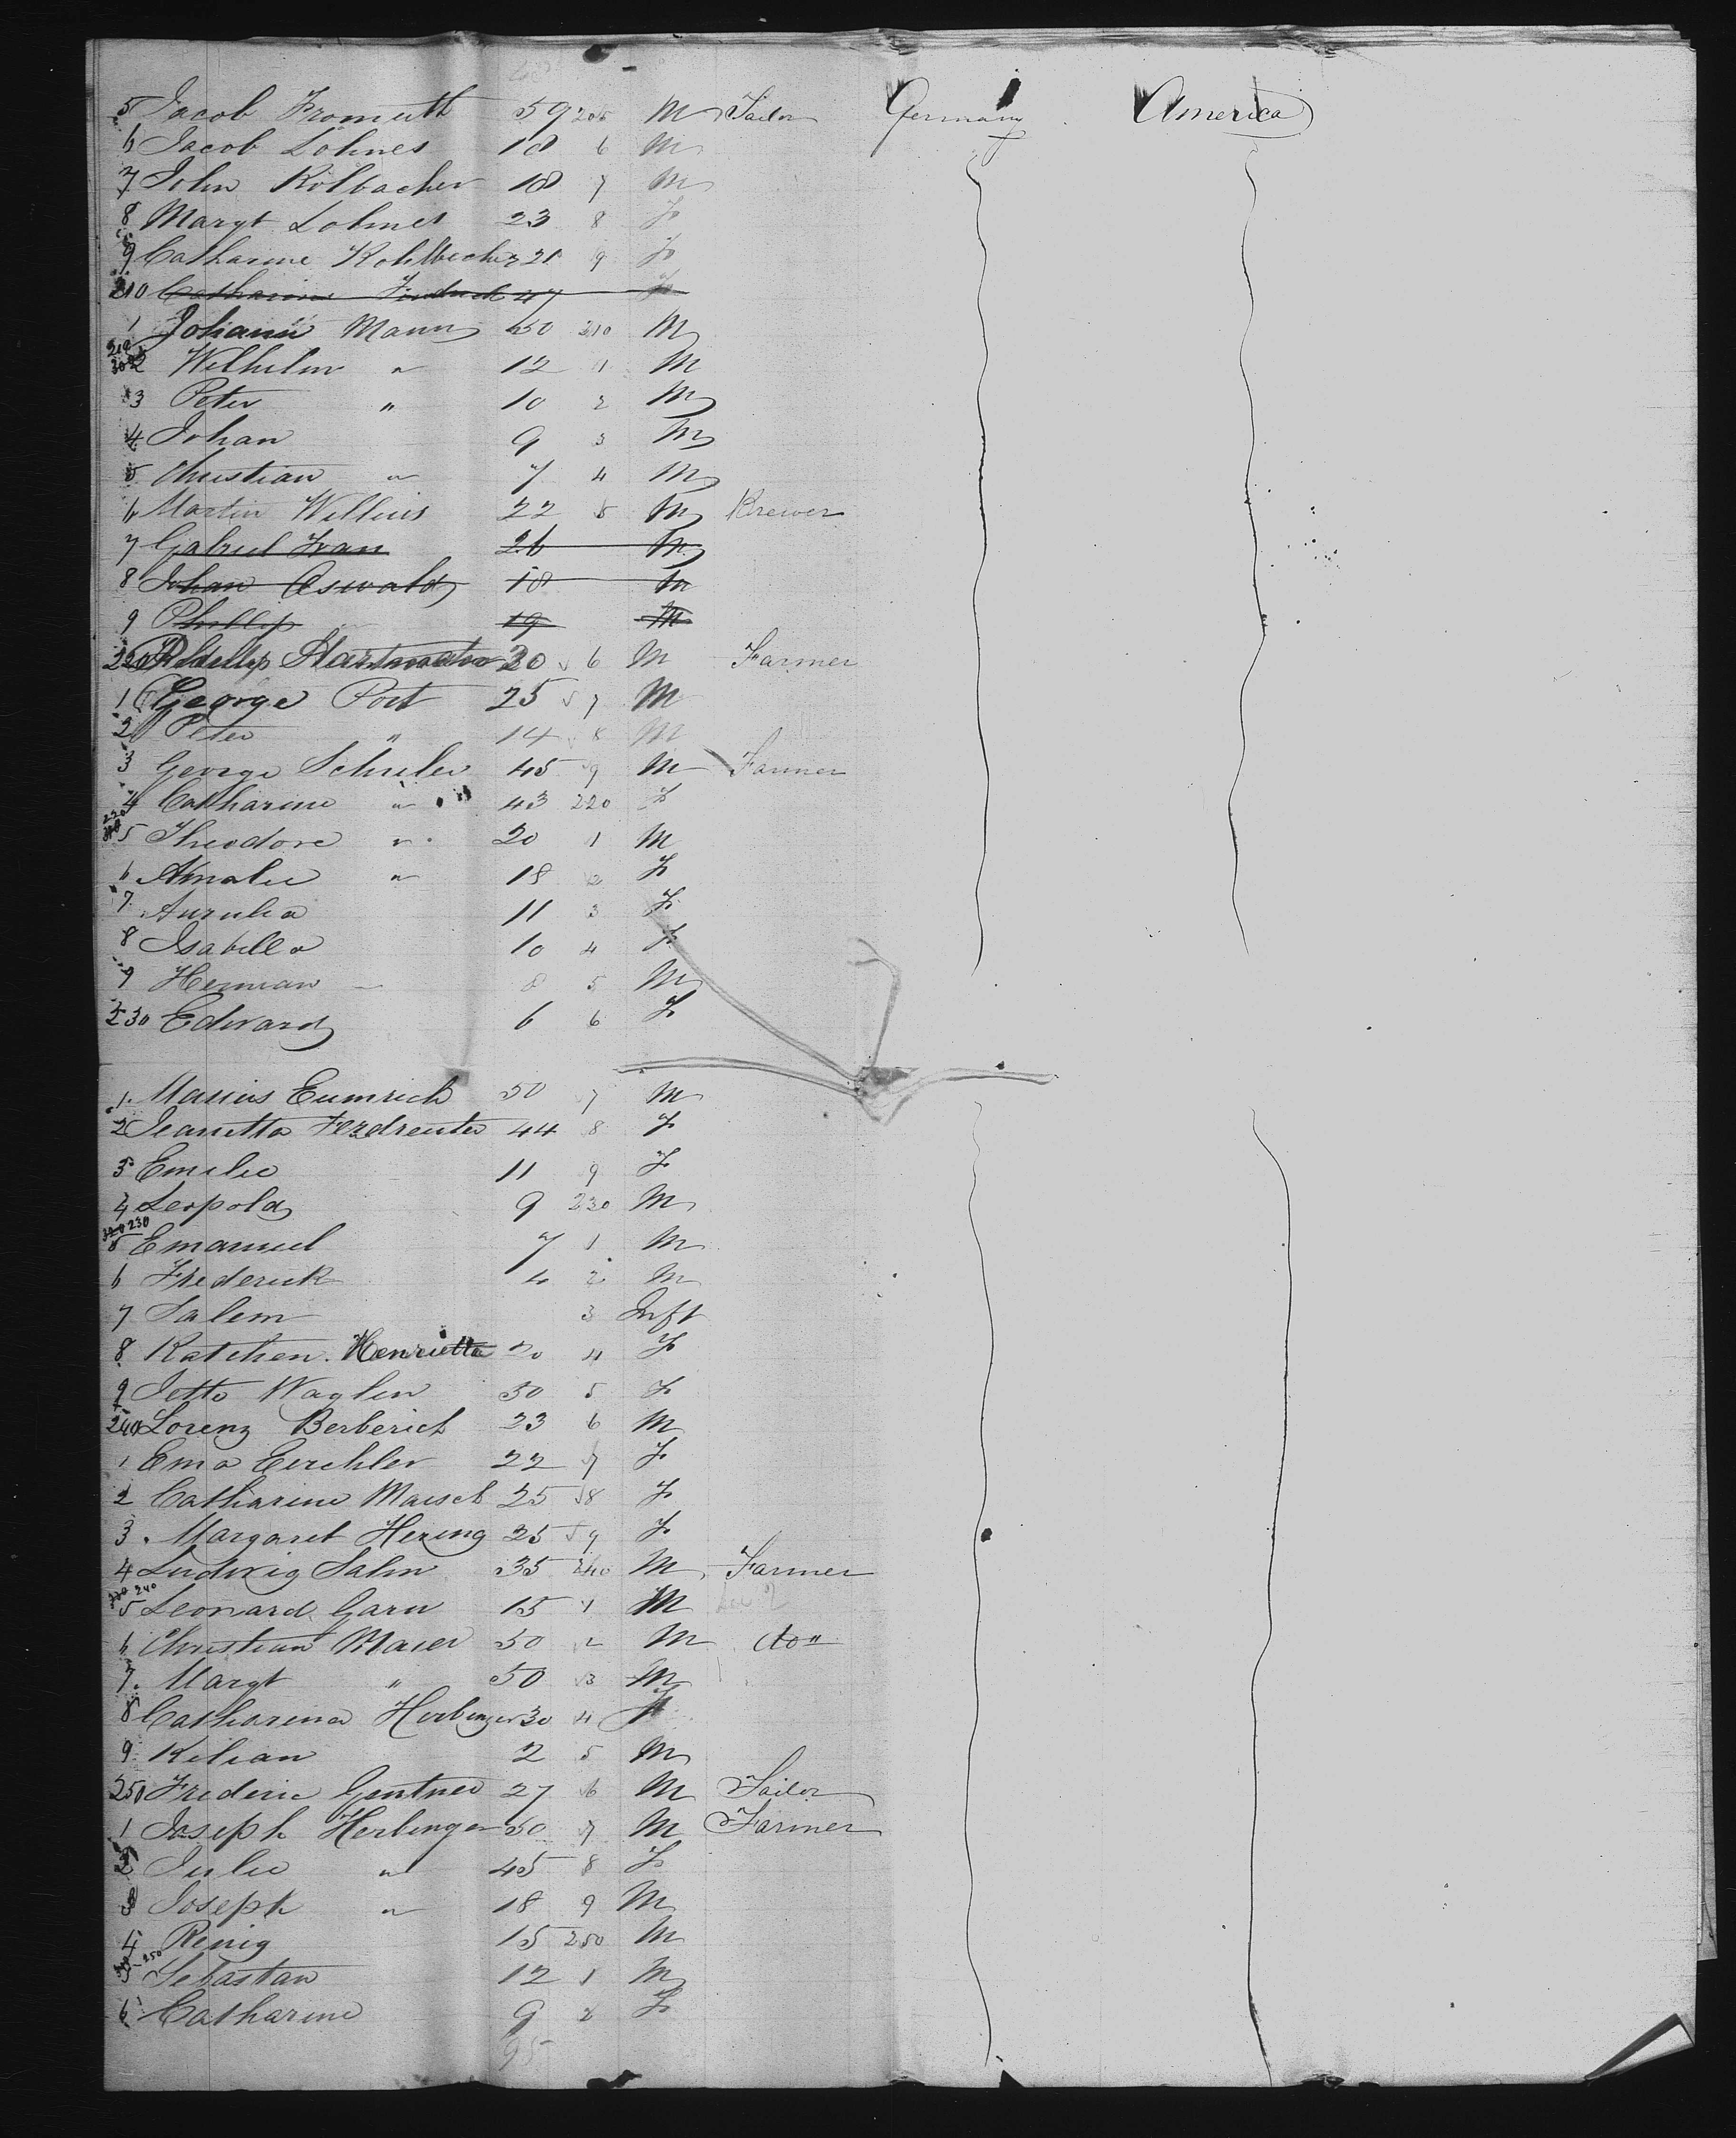 5 Jacob Fromuth 59 205 M Tailor Germany America
6 Jacob Lohnes 18 6 M
7 John Kolbacher 18 7 M
8 Margt Lohnes 23 8 F
9 Catharine Kohlbecher 21 9 F
210 Catharine 47 F
1 Johann Mann 50 210 M
2 Wilhelm " 12 1 M
3 Peter " 10 2 M
4 Johan 9 3 M
5 Christian " 7 4 M
6 Martin Willius 22 5 M Brewer
7 Gabriel Ivan 26 M
8 Johan Oswald 18 M
9 Phillip 19 M
220 Phillip Hartmann 30 6 M Farmer
1 George Port 25 7 M
2 Peter " 14 8 M
3 George Schuler 45 9 M Farmer
4 Catharine " 43 220 F
5 Theodore " 20 1 M
6 Amalie " 18 2 F
7 Aurulia 11 3 F
8 Isabella 10 4 F
9 Herman 8 5 M
230 Edward 6 6 F
1 Marius Eumrich 50 7 M
2 Jeanetta Ferdreuter 44 8 F
3 Emilie 11 9 F
4 Leopold 9 230 M
230
5 Emanuel 7 1 M
6 Frederick 4 2 M
7 Salem 3 Inft
8 Katchen Henrietta 20 4 F
9 Jette Waglen 30 5 F
240 Lorenz Berberich 23 6 M
1 Ema Eerchler 22 7 F
2 Catharine Maisch 25 8 F
3 Margaret Hering 25 9 F
4 Ludwig Salm 35 240 M Farmer
240
5 Leonard Garn 15 1 M
6 Christian Maier 50 2 M do "
7 Margt " 50 3 M
8 Catharina Herbinger 30 4 F
9 Kilian 2 5 M
250 Frederic Gentner 27 6 M Tailor
1 Joseph Herbinger 50 7 M Farmer
2 Julie " 45 8 F
3 Joseph " 18 9 M
4 Renig 15 250 M
250
5 Sebastan 12 1 M
6 Catharine 9 2 F
95